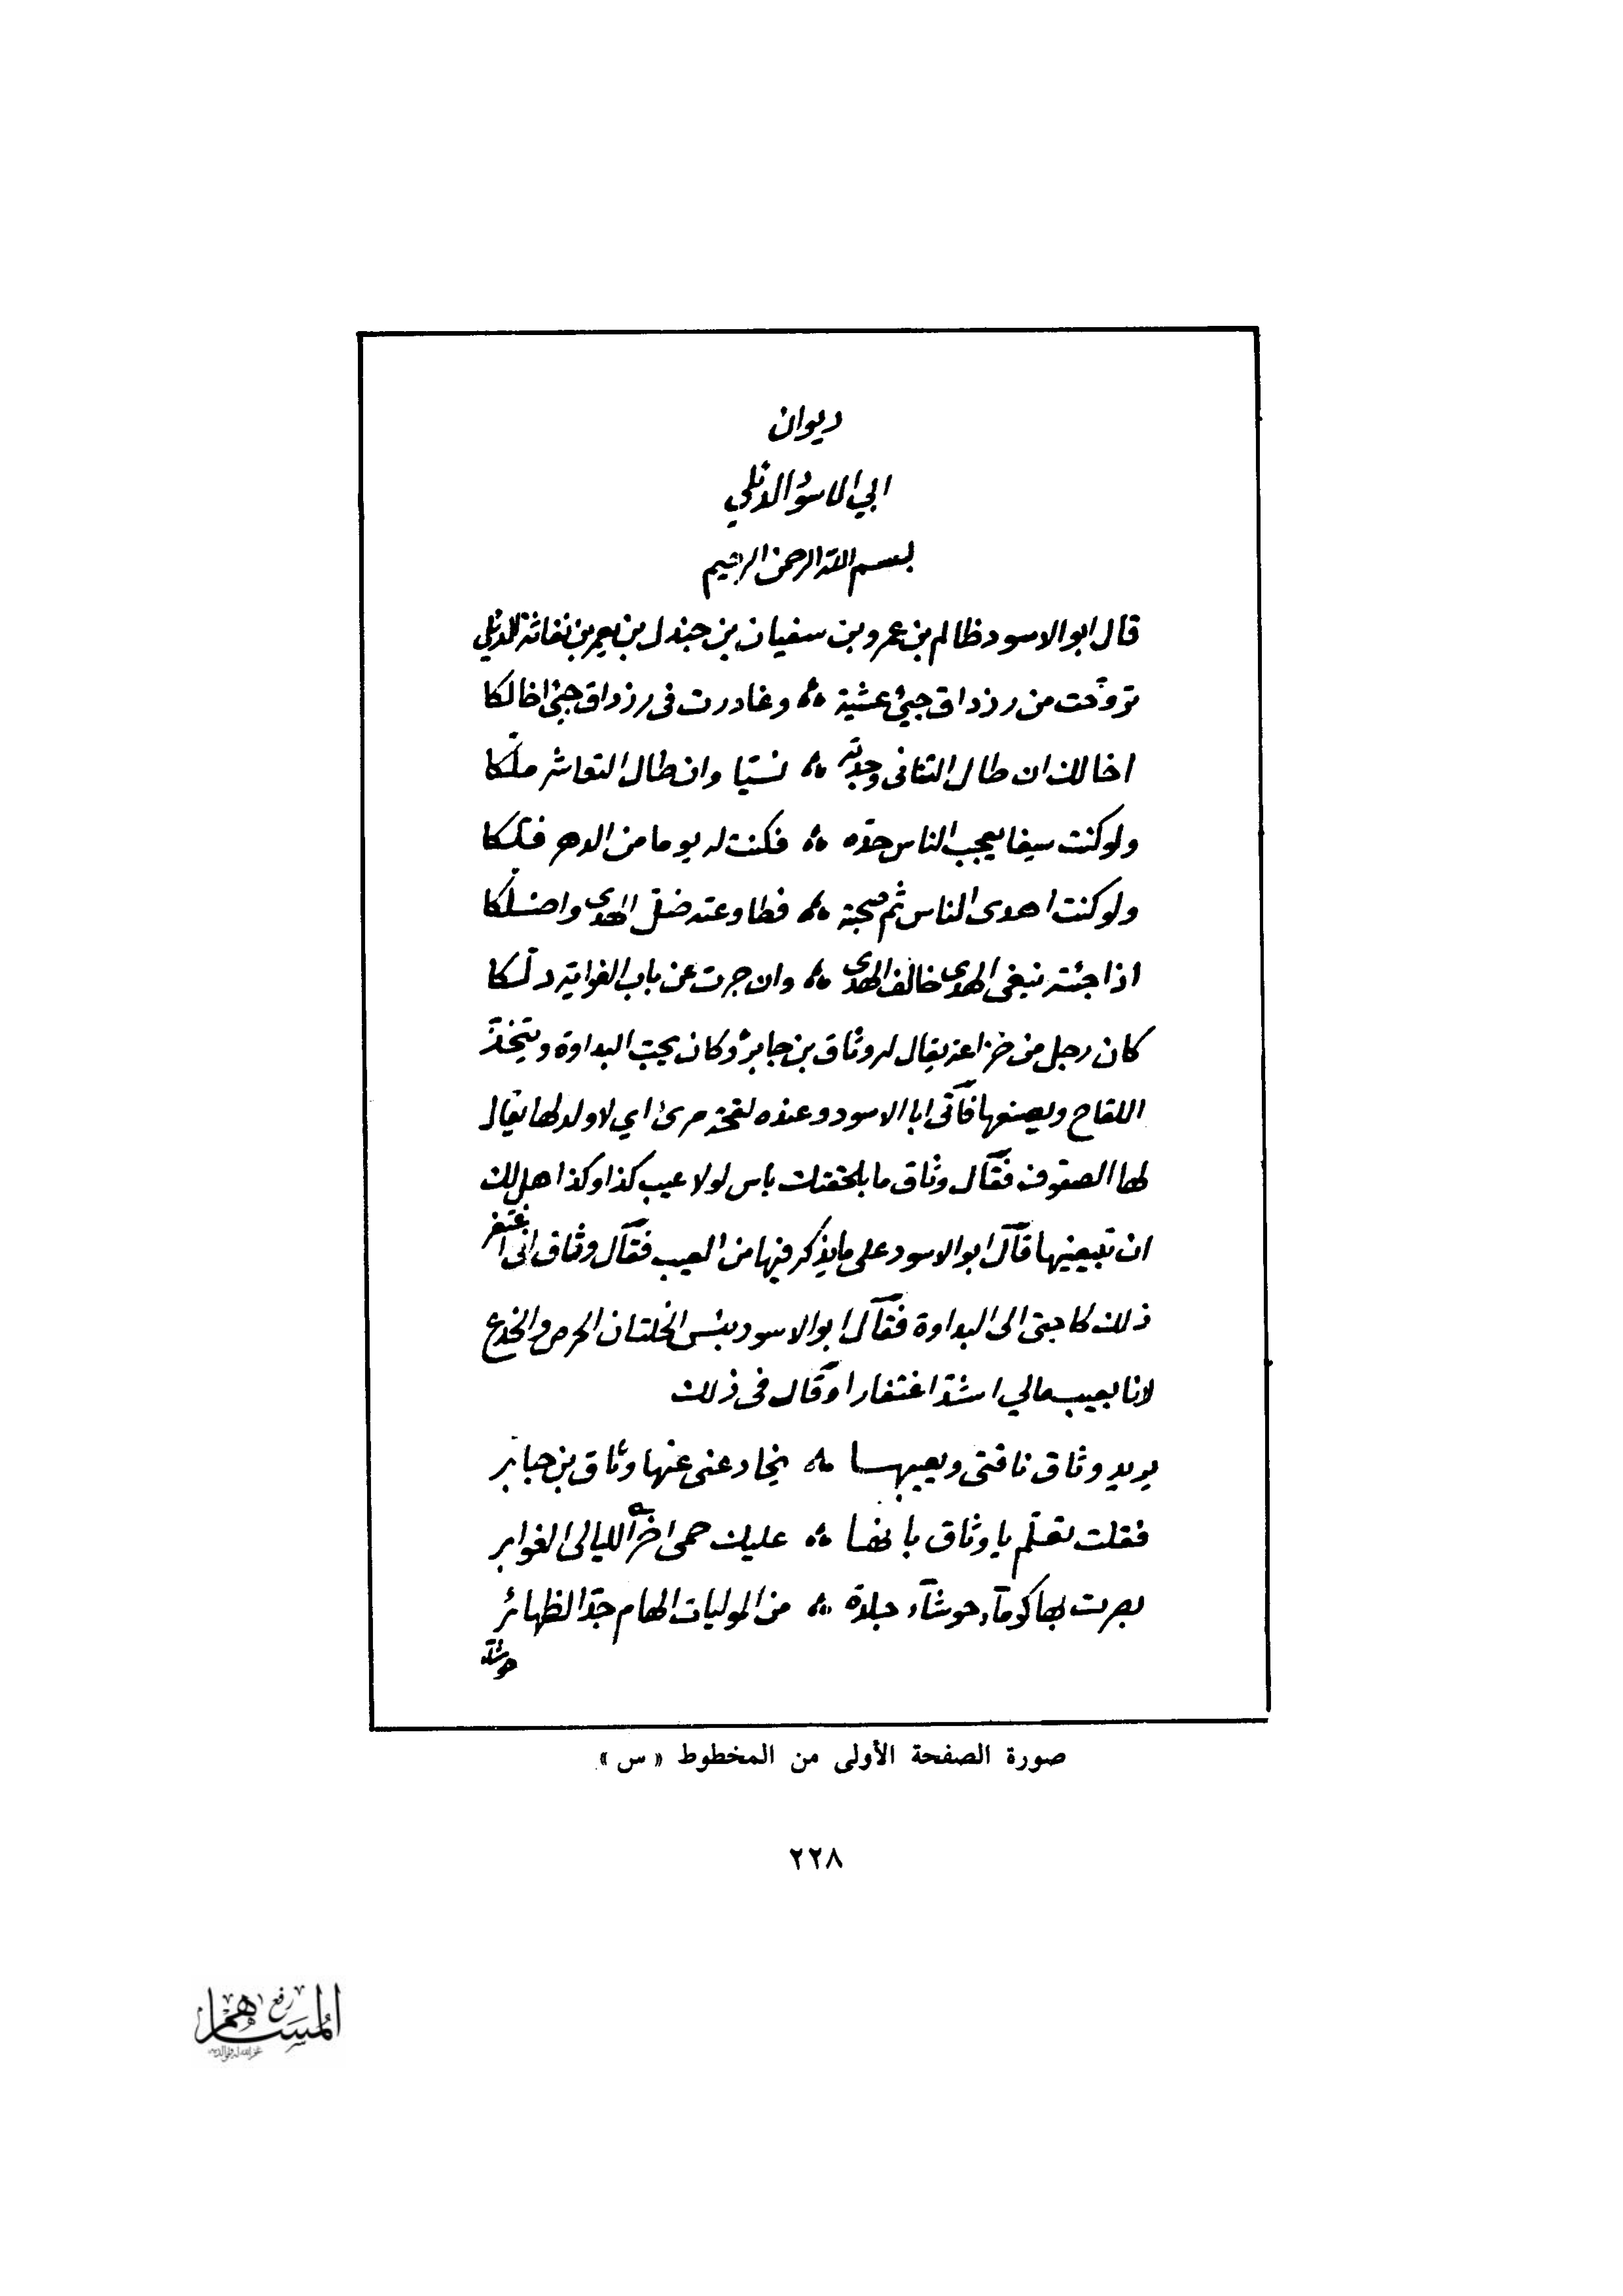 ديوان
ابي الاسود الدئلي
بسم الله الرحمن الرحيم
قال ابو الاسود ظالم بن عمرو بن سفيان بن جندل بن يعمر بن نفاثة الدئلي
تروّحت من رزداق جيّ عشية وغادرت فى رزداق جيّ اخا لكا
اخا لك ان طال التنائى وجدته نسيّا وان طال التعاشر ملّكا
ولو كنت سيفا يعجب الناس حدّه فكنت له يوما من الدهر فلّكا
ولو كنت اهدى الناس ثم صحبته فطاوعته ضلّ الهدى واضلّكا
اذا جئته تبغى الهدى خالف الهدى وان جرت عن باب الغواية دلّكا
كان رجل من خزاعة يقال له وثاق بن جابر وكان يحبّ البداوة ويتّخذ
اللقاح ويصنعها فآتى ابا الاسود وعنده لقحة مرىّ اي لا ولد لها يقال
لها الصفوف فقال وثاق ما بلقحتك باس لولا عيب كذا وكذا هل لك
ان تبيعنيها قال ابو الاسود على ما يذكر فيها من العيب فقال وثاق انى اغتفر
ذلك لحاجتى الى البداوة فقال ابو الاسود بئس الخلتان الحرص والخدع
لانا بعيب مالي اشدّ اغتفارا وقال فى ذلك
يريد وثاق ناقتى ويعيبها يخادعنى عنها وثاق بن جابر
فقلت تعلّم يا وثاق بانها عليك حمى اخرى الليالى الغوابر
بصرت بها كومآء حوشآء جلدة من الموليات الهام حدّ الظهائر
حوشآء
صورة الصفحة الأولى من المخطوط « س »
٢٢٨
رفع
المساهم
غفر الله له ولوالديه